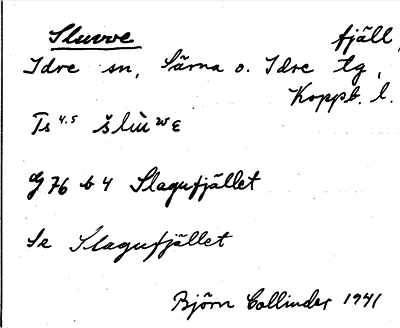 Sluvve fjäll,
Idre sn, Särna o. Idre tg,
Koppb. l.
Ts 4.5 šlùwε
G 76 b 4 Slagufjället
Se Slagufjället
Björn Collinder 1941